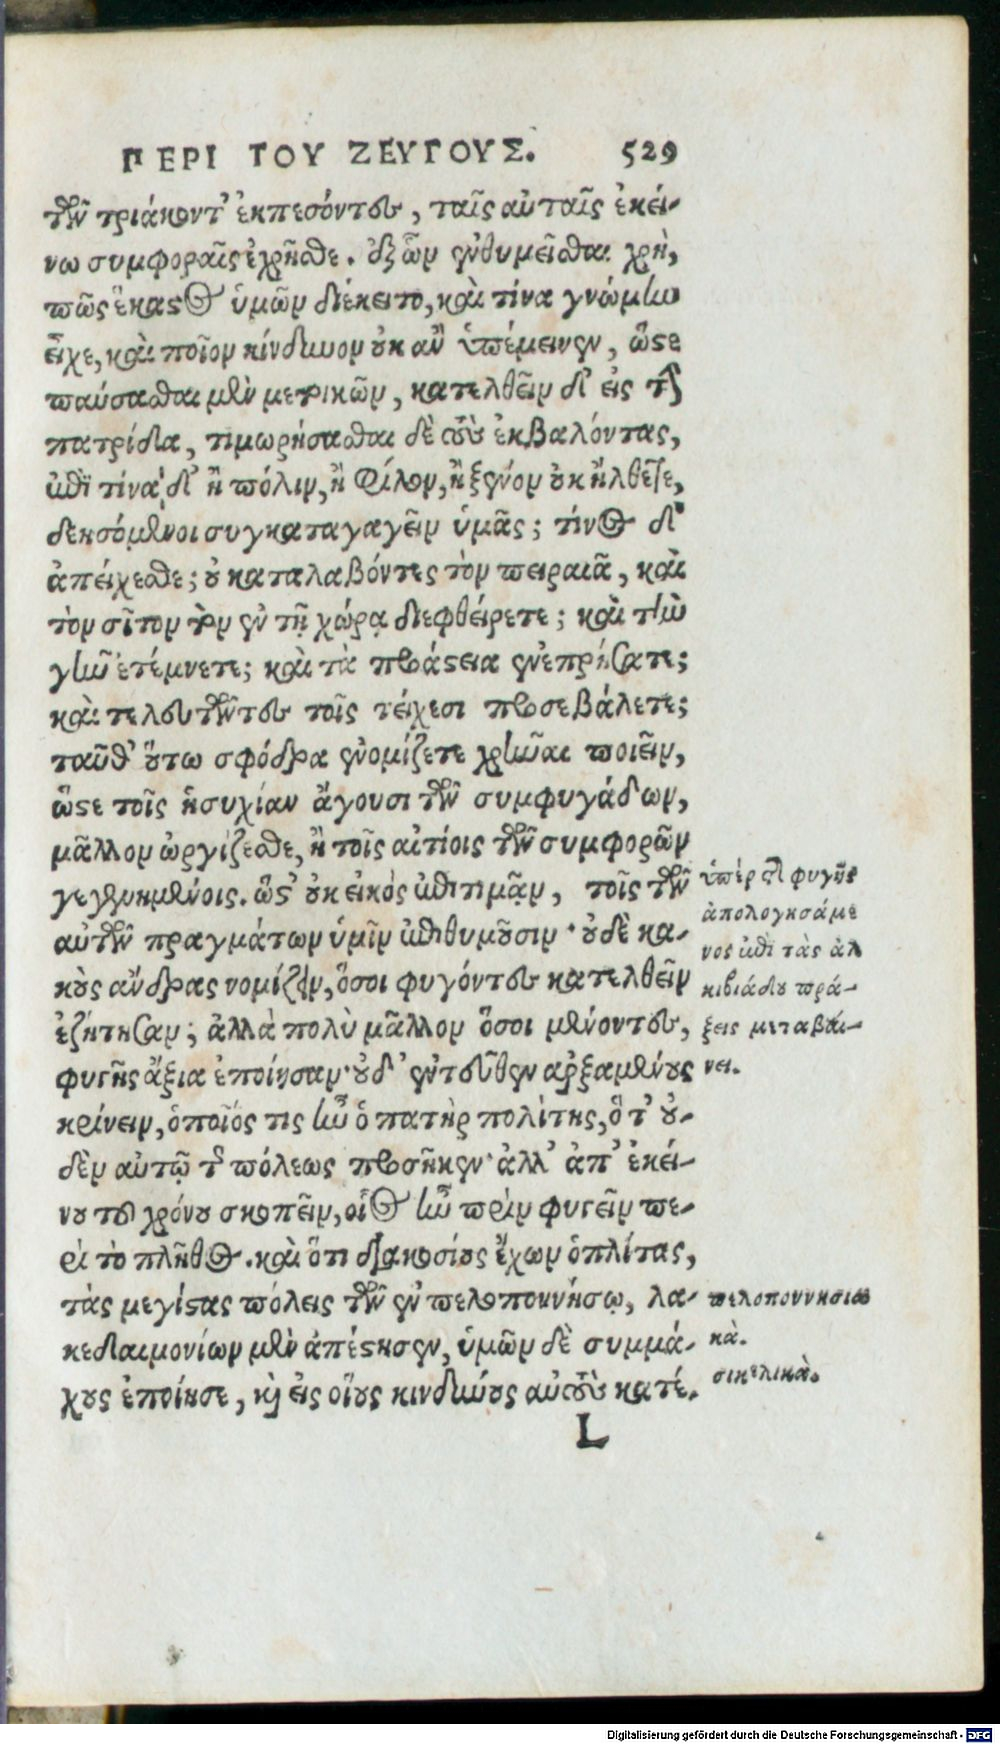 ΠΕΡΙ ΤΟΥ ΖΕΥΓΟΥΣ. 529
τῶν τριάκοντ' ἐκπεσόντες, ταῖς αὐταῖς ἐκεί-
νῳ συμφοραῖς ἐχρῆσθε. ἐξ ὧν ἐνθυμεῖσθαι χρὴ,
πῶς ἕκαστος ὑμῶν διέκειτο, καὶ τίνα γνώμην
εἶχε, καὶ ποῖον κίνδυνον οὐκ ἂν ὑπέμεινεν, ὥστε
παύσασθαι μὲν μετοικῶν, κατελθεῖν δ' εἰς τὴν
πατρίδα, τιμωρήσασθαι δὲ τοὺς ἐκβαλόντας,
ἐπὶ τίνα δ' ἢ πόλιν, ἢ φίλον, ἢ ξένον οὐκ ἤλθετε,
δεησόμενοι συγκαταγαγεῖν ὑμᾶς; τίνος δ'
ἀπείχεσθε; οὐ καταλαβόντες τὸν πειραιᾶ, καὶ
τὸν σῖτον τὸν ἐν τῇ χώρᾳ διεφθείρετε; καὶ τὴν
γῆν ἐτέμνετε; καὶ τὰ προάστεια ἐνεπρήσατε;
καὶ τελευτῶντες τοῖς τείχεσι προσεβάλετε;
ταῦθ' οὕτω σφόδρα ἐνομίζετε χρῆναι ποιεῖν,
ὥστε τοῖς ἡσυχίαν ἄγουσι τῶν συμφυγάδων,
μᾶλλον ὠργίζεσθε, ἢ τοῖς αἰτίοις τῶν συμφορῶν
γεγενημένοις. ὥστ' οὐκ εἰκὸς ἐπιτιμᾷν, τοῖς τῶν
αὐτῶν πραγμάτων ὑμῖν ἐπιθυμοῦσιν· οὐδὲ κα-
κοὺς ἄνδρας νομίζειν, ὅσοι φυγόντες κατελθεῖν
ἐζήτησαν; ἀλλὰ πολὺ μᾶλλον ὅσοι μένοντες,
φυγῆς ἄξια ἐποίησαν· οὐδ' ἐντεῦθεν ἀρξαμένους
κρίνειν, ὁποῖός τις ἦν ὁ πατὴρ πολίτης, ὅτ' οὐ-
δὲν αὐτῷ τῆς πόλεως προσῆκεν· ἀλλ' ἀπ' ἐκεί-
νου τοῦ χρόνου σκοπεῖν, οἷος ἦν πρὶν φυγεῖν πε-
ρὶ τὸ πλῆθος. καὶ ὅτι διακοσίους ἔχων ὁπλίτας,
τὰς μεγίστας πόλεις τῶν ἐν πελοποννήσῳ, λα-
κεδαιμονίων μὲν ἀπέστησεν, ὑμῶν δὲ συμμά-
χους ἐποίησε, καὶ εἰς οἵους κινδύνους αὐτοὺς κατέ-
L
ὑπὲρ τῆς φυγῆς
ἀπολογησάμε
νος ἐπὶ τὰς ἀλ
κιβιάδου πρά-
ξεις μεταβαί-
νει.
πελοποννησια
κὰ.
σικελικὰ.
Digitalisierung gefördert durch die Deutsche Forschungsgemeinschaft - DFG